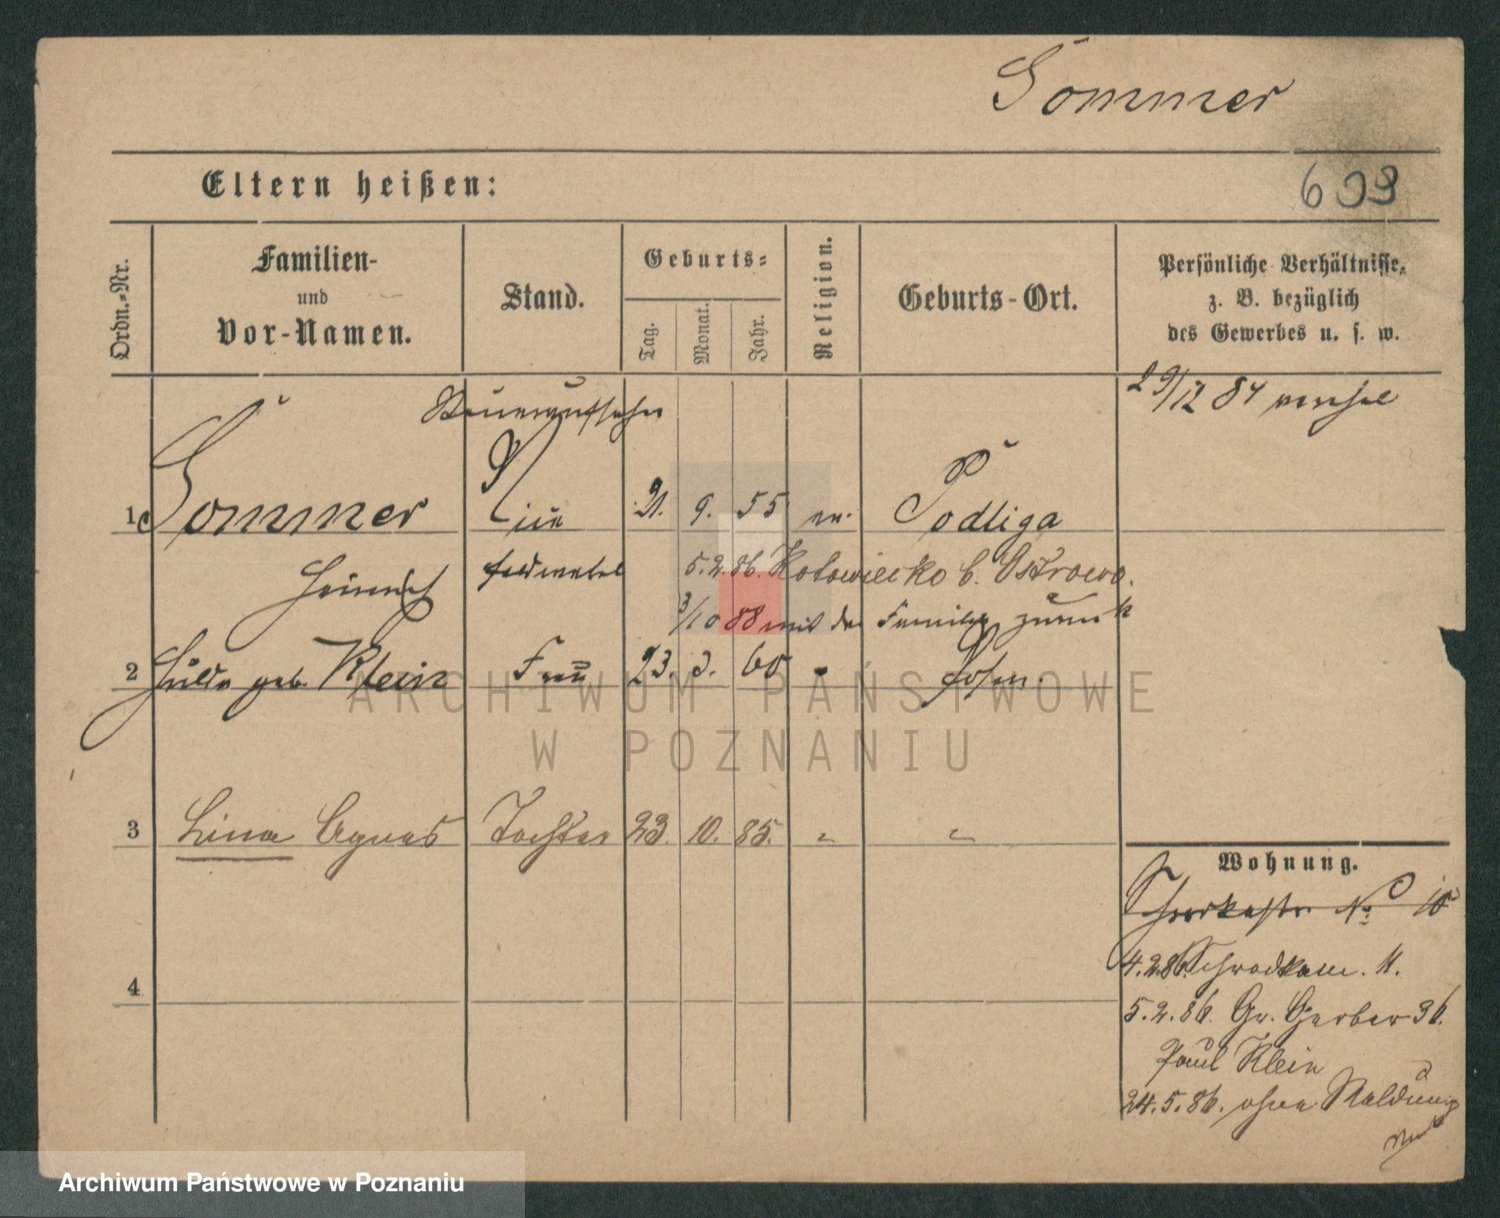 Sommer
Eltern heißen:
609
Ordn.-Nr.
Familien-
und
Vor-Namen.
Stand.
Geburts-
Tag.
Monat.
Jahr.
Religion.
Geburts-Ort.
Persönliche Verhältnisse,
z. B. bezüglich
des Gewerbes u. s. w.
Steueraufseher
29/12 84
1 Sommer 21. 9. 55 ev. Podliga
Heinrich Feldwebel 5.2.86. Kotowiecko b. Ostrowo.
3/10 88 mit der Familie zurück
2 Hulda geb. Klein Frau 23. 3. 60 " Posen.
ARCHIWUM PAŃSTWOWE
W POZNANIU
3 Lina Agnes Tochter 23. 10. 85. " "
Wohnung.
No 10
4.2.86. Schrodkam. 11.
4
5.2.86. Gr. Gerber 36.
Paul Klein
24.5.86. ohne Meldung
Archiwum Państwowe w Poznaniu